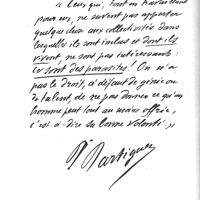 à ceux qui, tout en travaillant
pour eux, ne savent pas apporter
quelque chose aux collectivités dans
lesquelles ils sont inclus et dont ils
vivent ne sont pas intéressants :
ce sont des parasites ! On n'a
pas le droit, à défaut de génie ou
de talent, de ne pas donner ce qu'un
homme peut tout au moins offrir,
c'est-à-dire sa bonne volonté. »